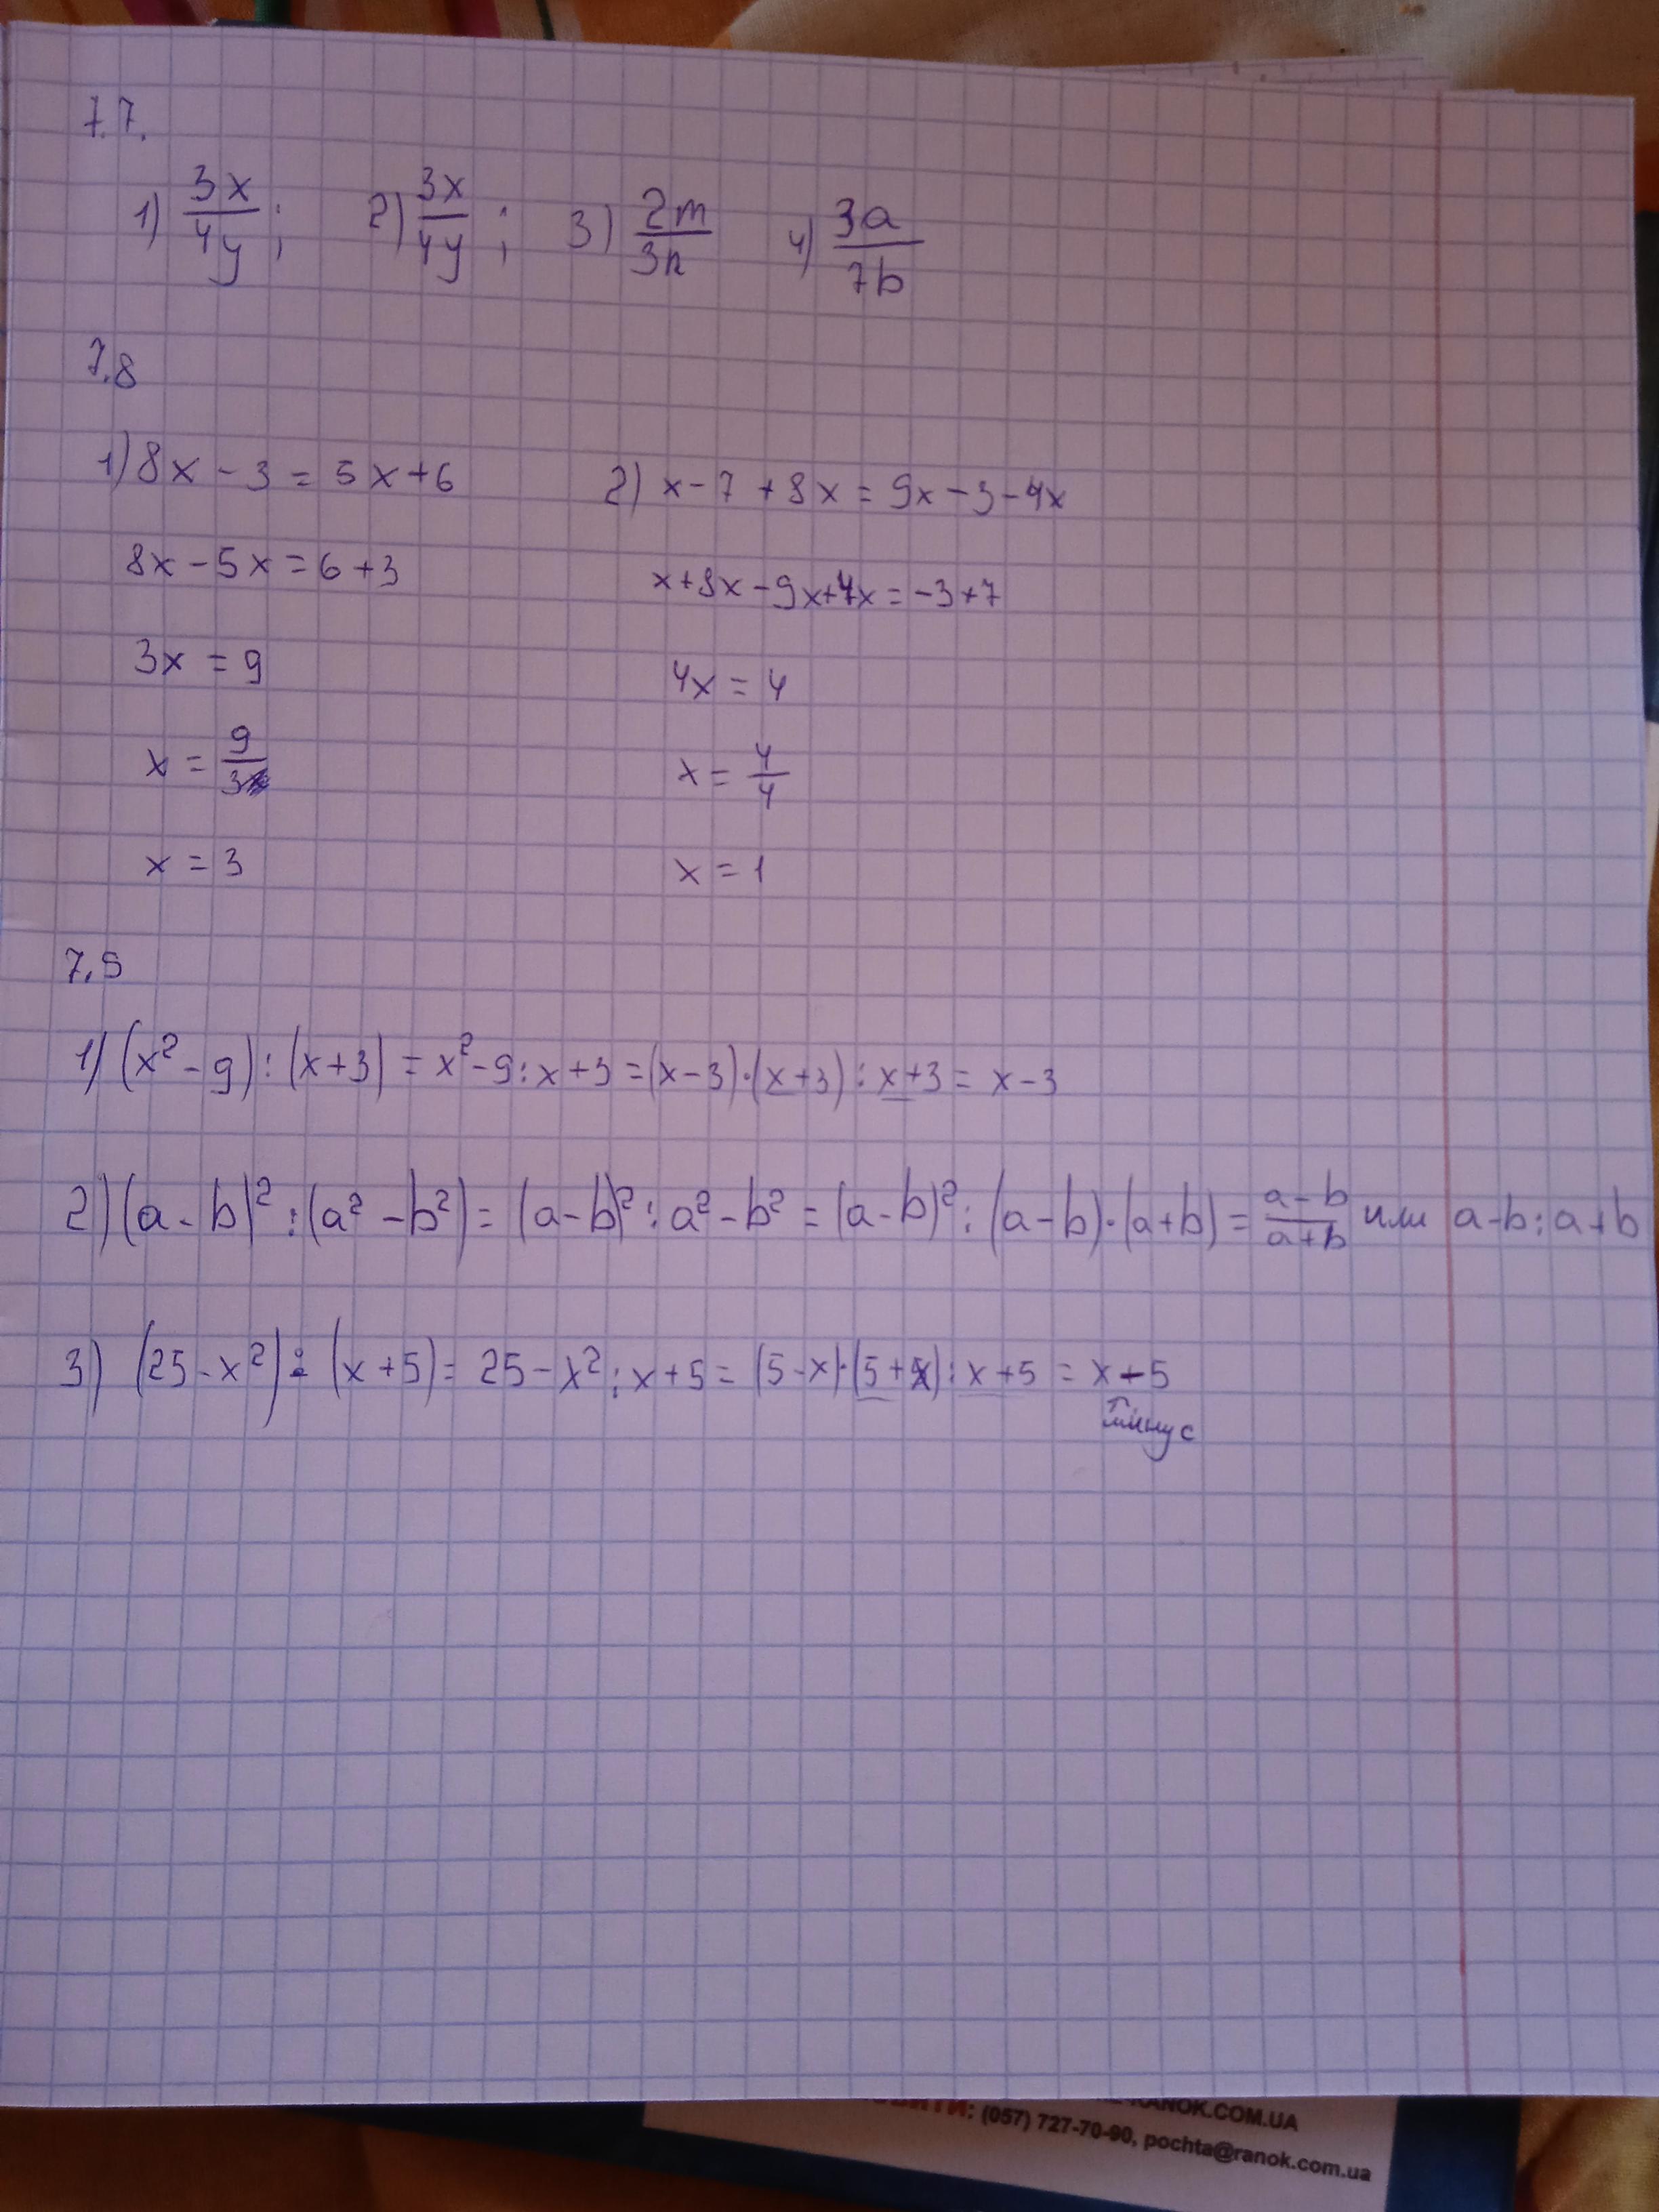 7.7.
1) 3x/4y ; 2) 3x/4y ; 3) 2m/3n 4) 3a/7b
7.8
1) 8x - 3 = 5x + 6 2) x - 7 + 8x = 9x - 3 - 4x
8x - 5x = 6 + 3 x + 8x - 9x + 4x = -3 + 7
3x = 9 4x = 4
x = 9/3 x = 4/4
x = 3 x = 1
7.9
1) (x² - 9) : (x + 3) = x² - 9 : x + 3 = (x - 3) · (x + 3) : x + 3 = x - 3
2) (a - b)² : (a² - b²) = (a - b)² : a² - b² = (a - b)² : (a - b) · (a + b) = a - b/a + b или a - b : a + b
3) (25 - x²) : (x + 5) = 25 - x² : x + 5 = (5 - x) · (5 + x) : x + 5 = x - 5
минус
RANOK.COM.UA
: (057) 727-70-90, pochta@ranok.com.ua